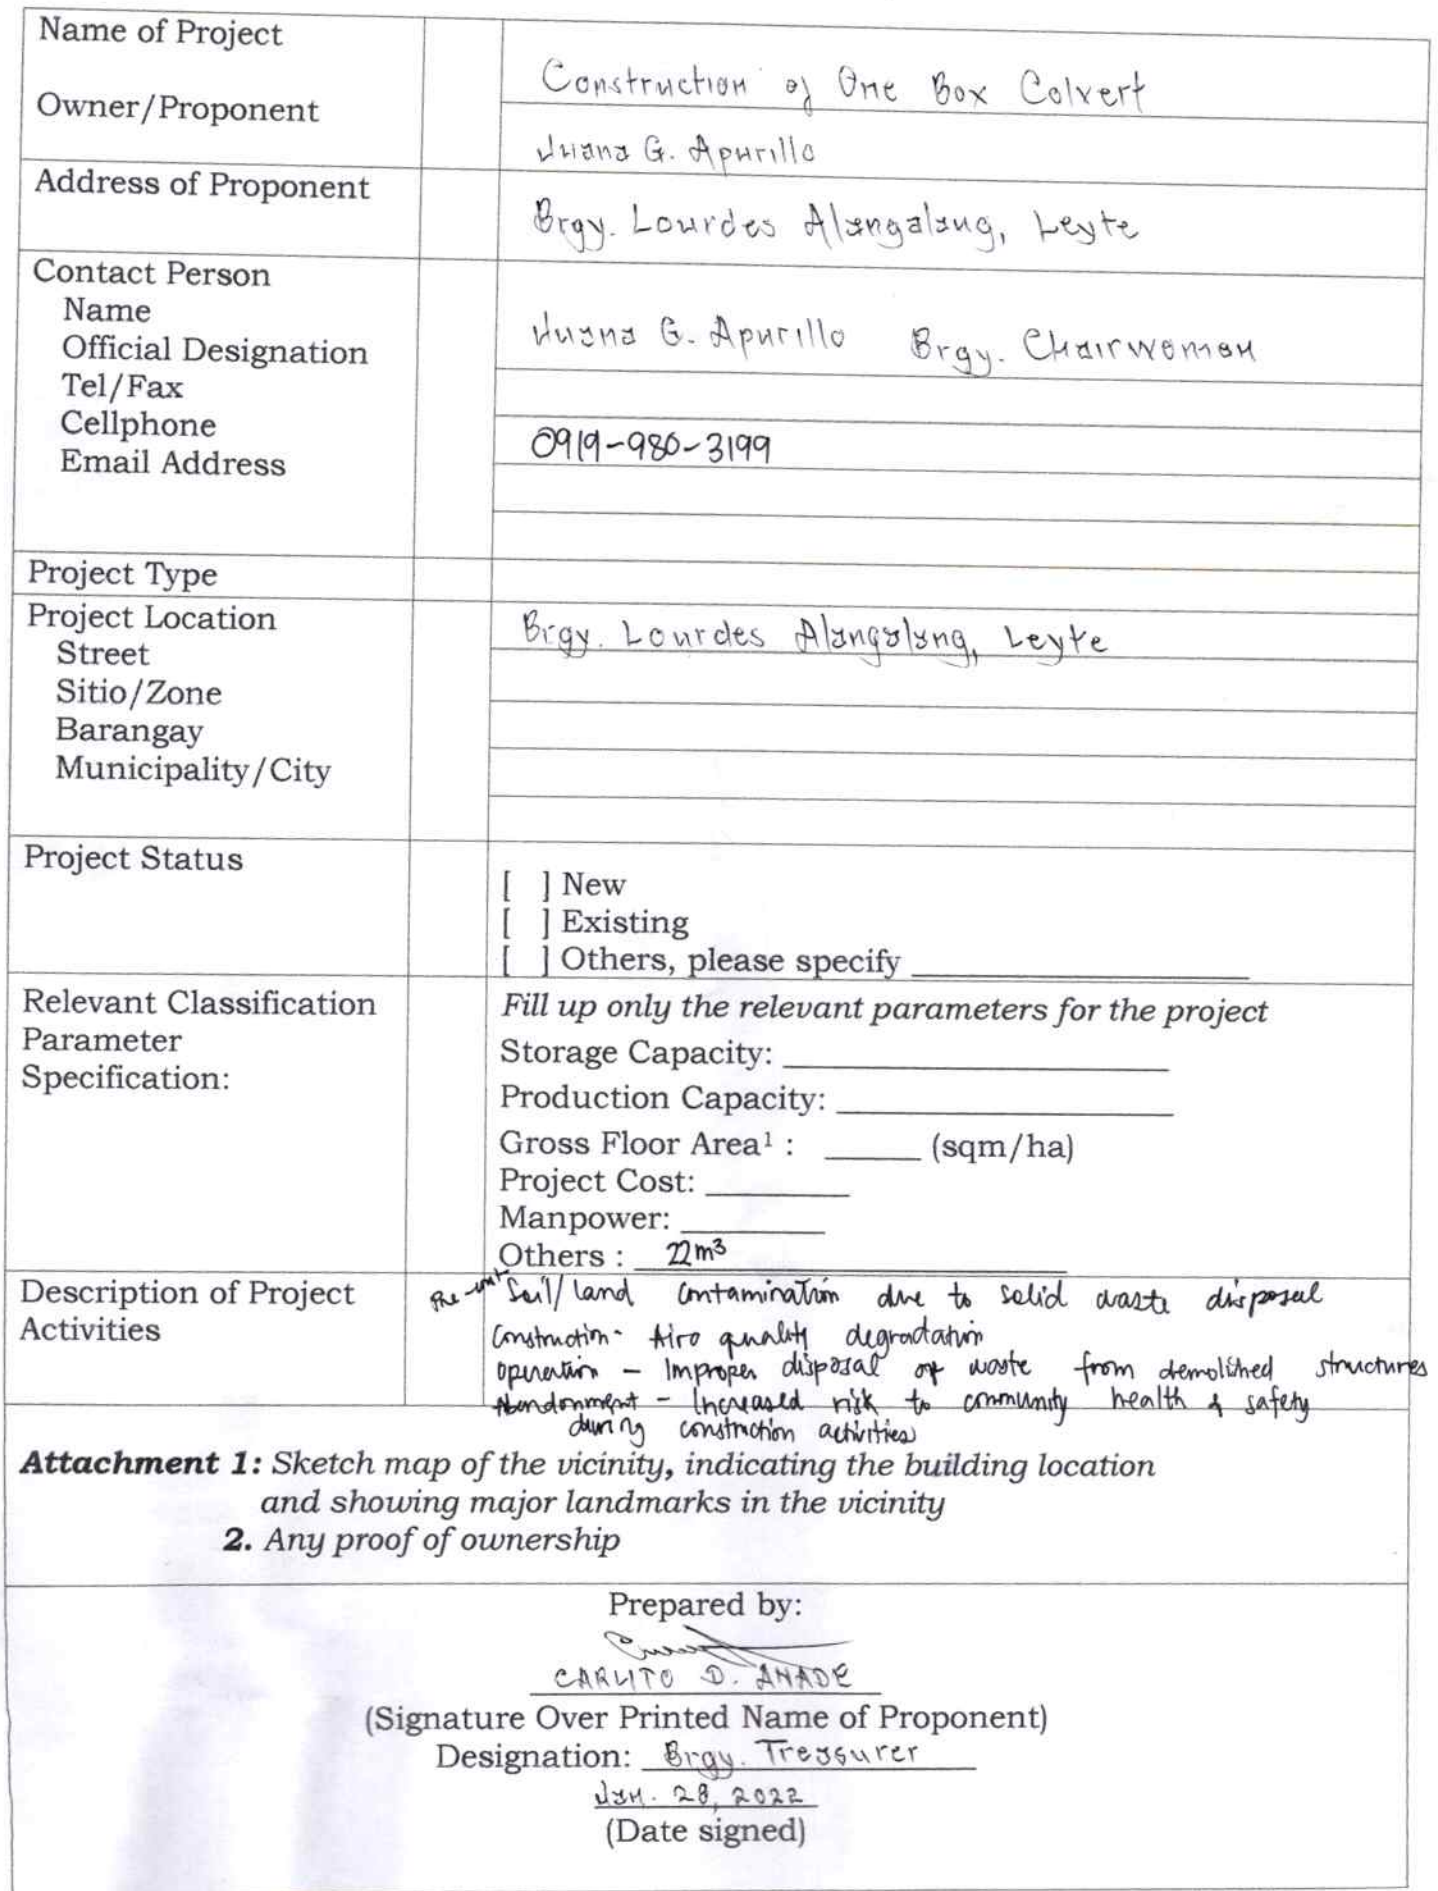 Name of Project
Construction of One Box Colvert
Owner/Proponent
Juana G. Apurillo
Address of Proponent
Brgy. Lourdes Alangalang, Leyte
Contact Person
Name
Official Designation
Juana G. Apurillo Brgy. Chairwoman
Tel/Fax
Cellphone
0919-980-3199
Email Address
Project Type
Project Location
Brgy. Lourdes Alangalang, Leyte
Street
Sitio/Zone
Barangay
Municipality/City
Project Status
[ ] New
[ ] Existing
[ ] Others, please specify
Relevant Classification
Parameter
Specification:
Fill up only the relevant parameters for the project
Storage Capacity:
Production Capacity:
Gross Floor Area¹ : (sqm/ha)
Project Cost:
Manpower:
Others : 22m³
Description of Project
Activities
Soil/land contamination due to solid waste disposal
Construction - Airo quality degradation
Operation - Improper disposal of waste from demolished structures
Abandonment - Increased risk to community health & safety
during construction activities
Attachment 1: Sketch map of the vicinity, indicating the building location
and showing major landmarks in the vicinity
2. Any proof of ownership
Prepared by:
CARLITO D. ANADE
(Signature Over Printed Name of Proponent)
Designation: Brgy. Treasurer
Jan. 28, 2022
(Date signed)